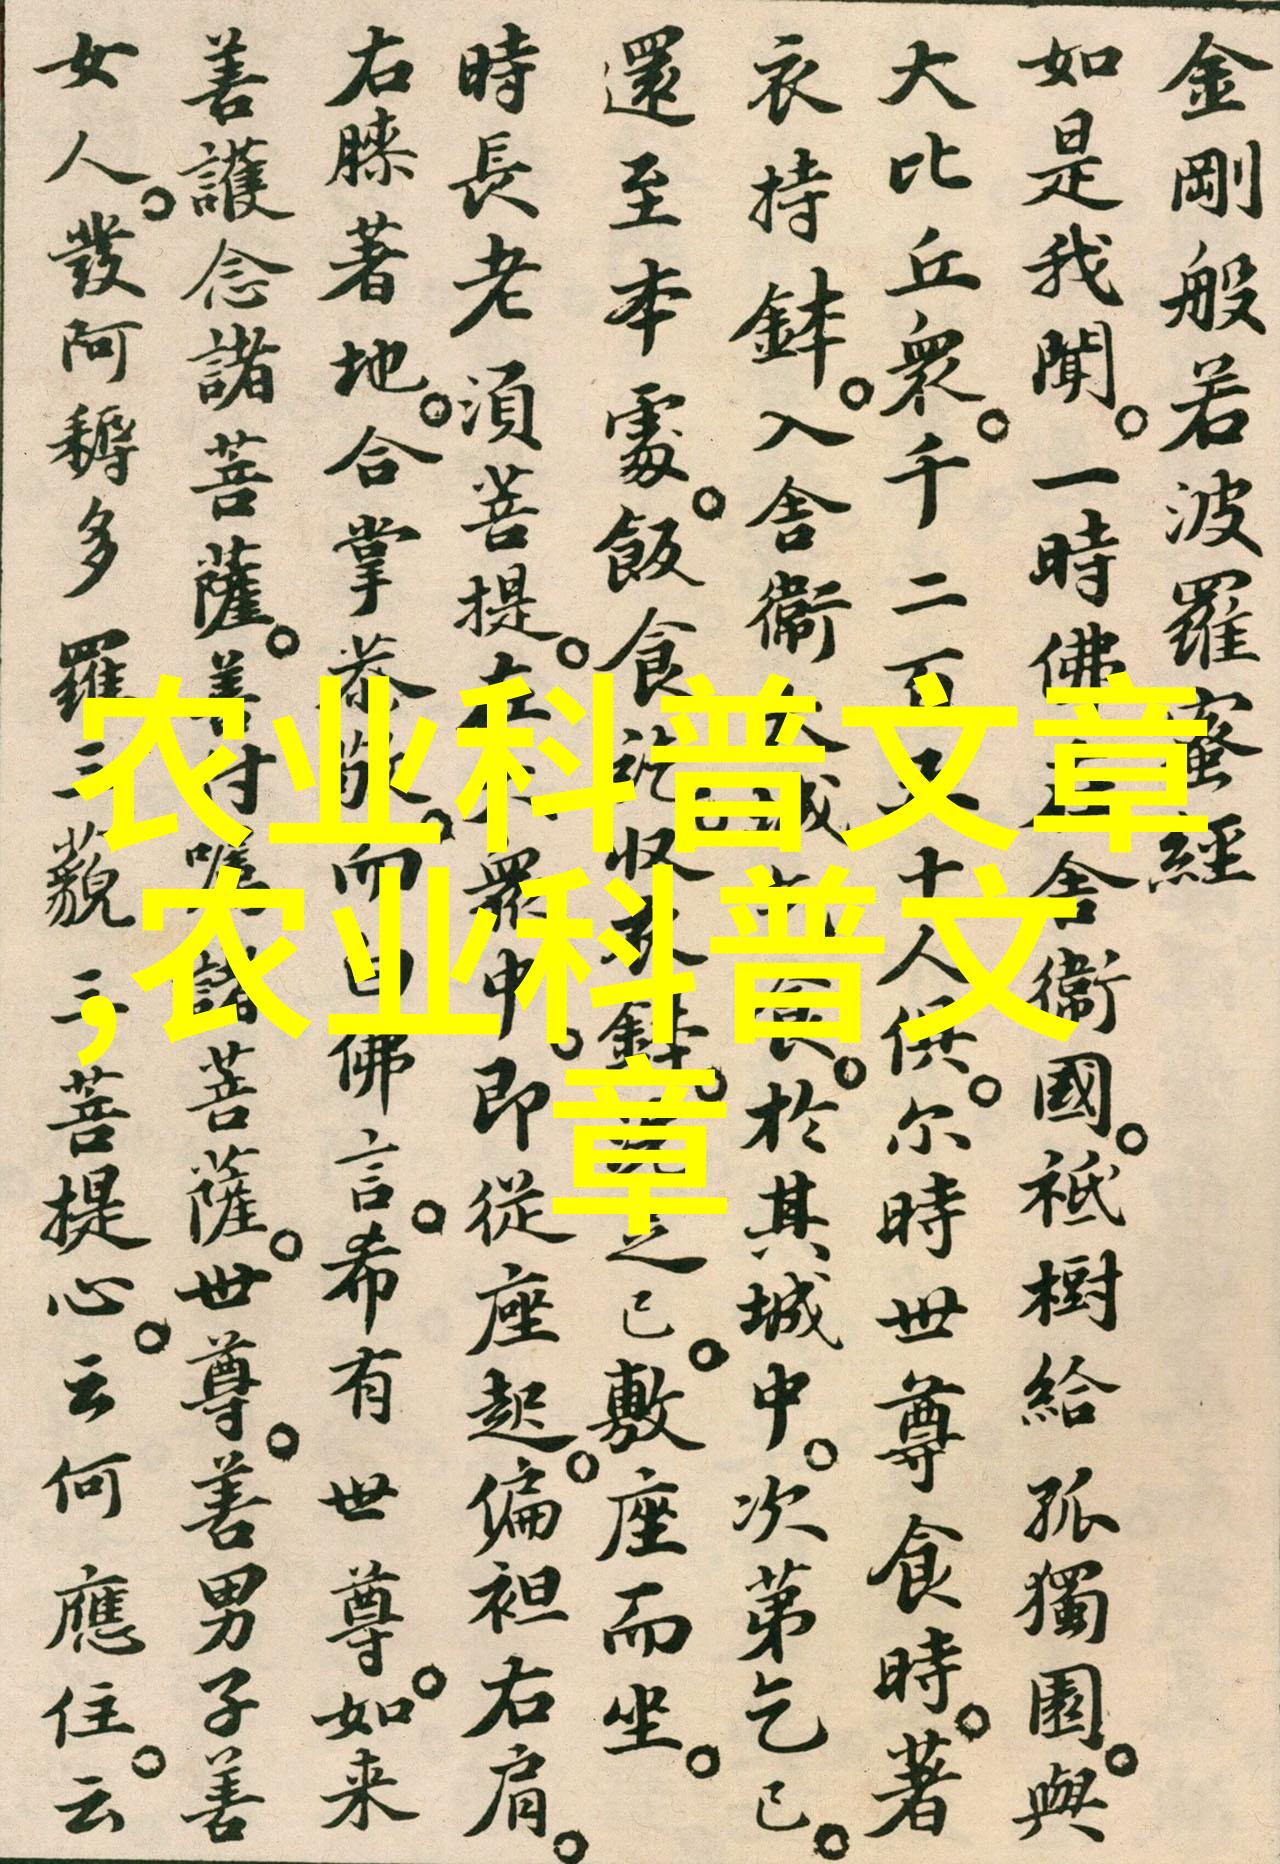 金剛般若波羅蜜經
如是我聞。一時佛在舍衞國。祇樹給孤獨園。與
大比丘衆。千二百五十人俱。尔時世尊食時。著
衣持鉢。入舍衞大城乞食。於其城中。次第乞已。
還至本處。飯食訖。收衣鉢。洗足已。敷座而坐。
時長老須菩提。在大衆中。即從座起。偏袒右肩。
右膝著地。合掌恭敬。而白佛言。希有世尊。如来
善護念諸菩薩。善付嘱諸菩薩。世尊。善男子善
女人。發阿耨多羅三藐三菩提心。云何應住。云
农业科普文章
,农业科普文
章